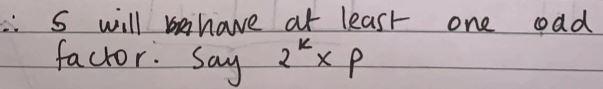 ∴ S will have at least one odd
factor. Say 2^k x p